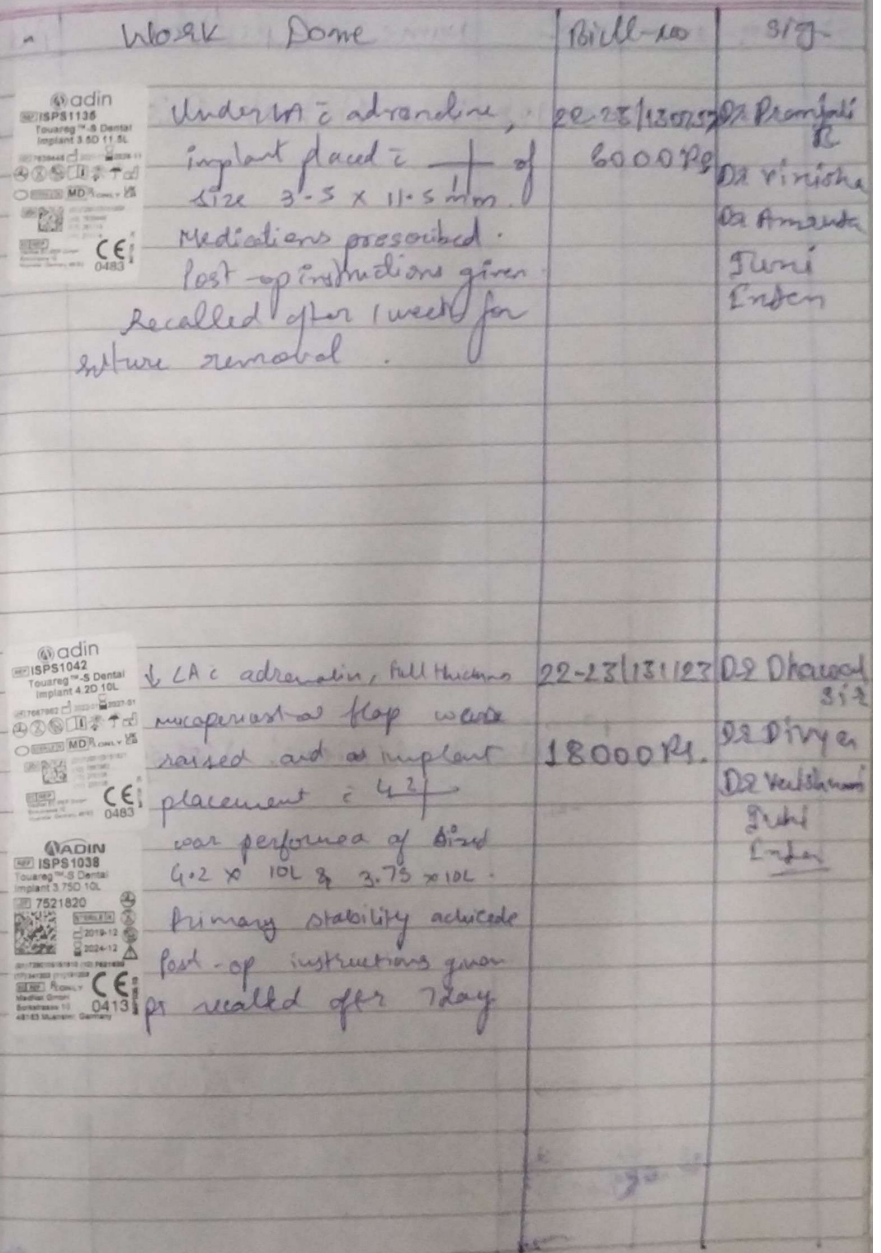 Work Done Bill-no Sig.
adin
REF ISPS1135
Touareg™-S Dental
Implant 3.5D 11.5L
MD R ONLY
CE
0483
Under LA c̄ adrenaline,
implant placed c̄ of
size 3.5 x 11.5 mm.
Medications prescribed.
Post-op instructions given
Recalled after 1 week for
suture removal.
6000 Rs
Dr Pranjali
Dr Vinisha
Dr Amruta
Juhi
adin
REF ISPS1042
Touareg™-S Dental
Implant 4.2D 10L
MD R ONLY
CE
0483
ADIN
REF ISPS1038
Touareg™-S Dental
Implant 3.75D 10L
7521820
2019-12
2024-12
CE
0413
↓ LA c̄ adrenalin, full thickness
flap
raised and implant
placement c̄ 4 2
was performed of sized
4.2 x 10L & 3.75 x 10L.
Primary stability
Post-op instructions given
pt recalled after 7day
22-23/131123
18000 Rs.
Dr Dhawal
Sir
Dr Divya
Juhi